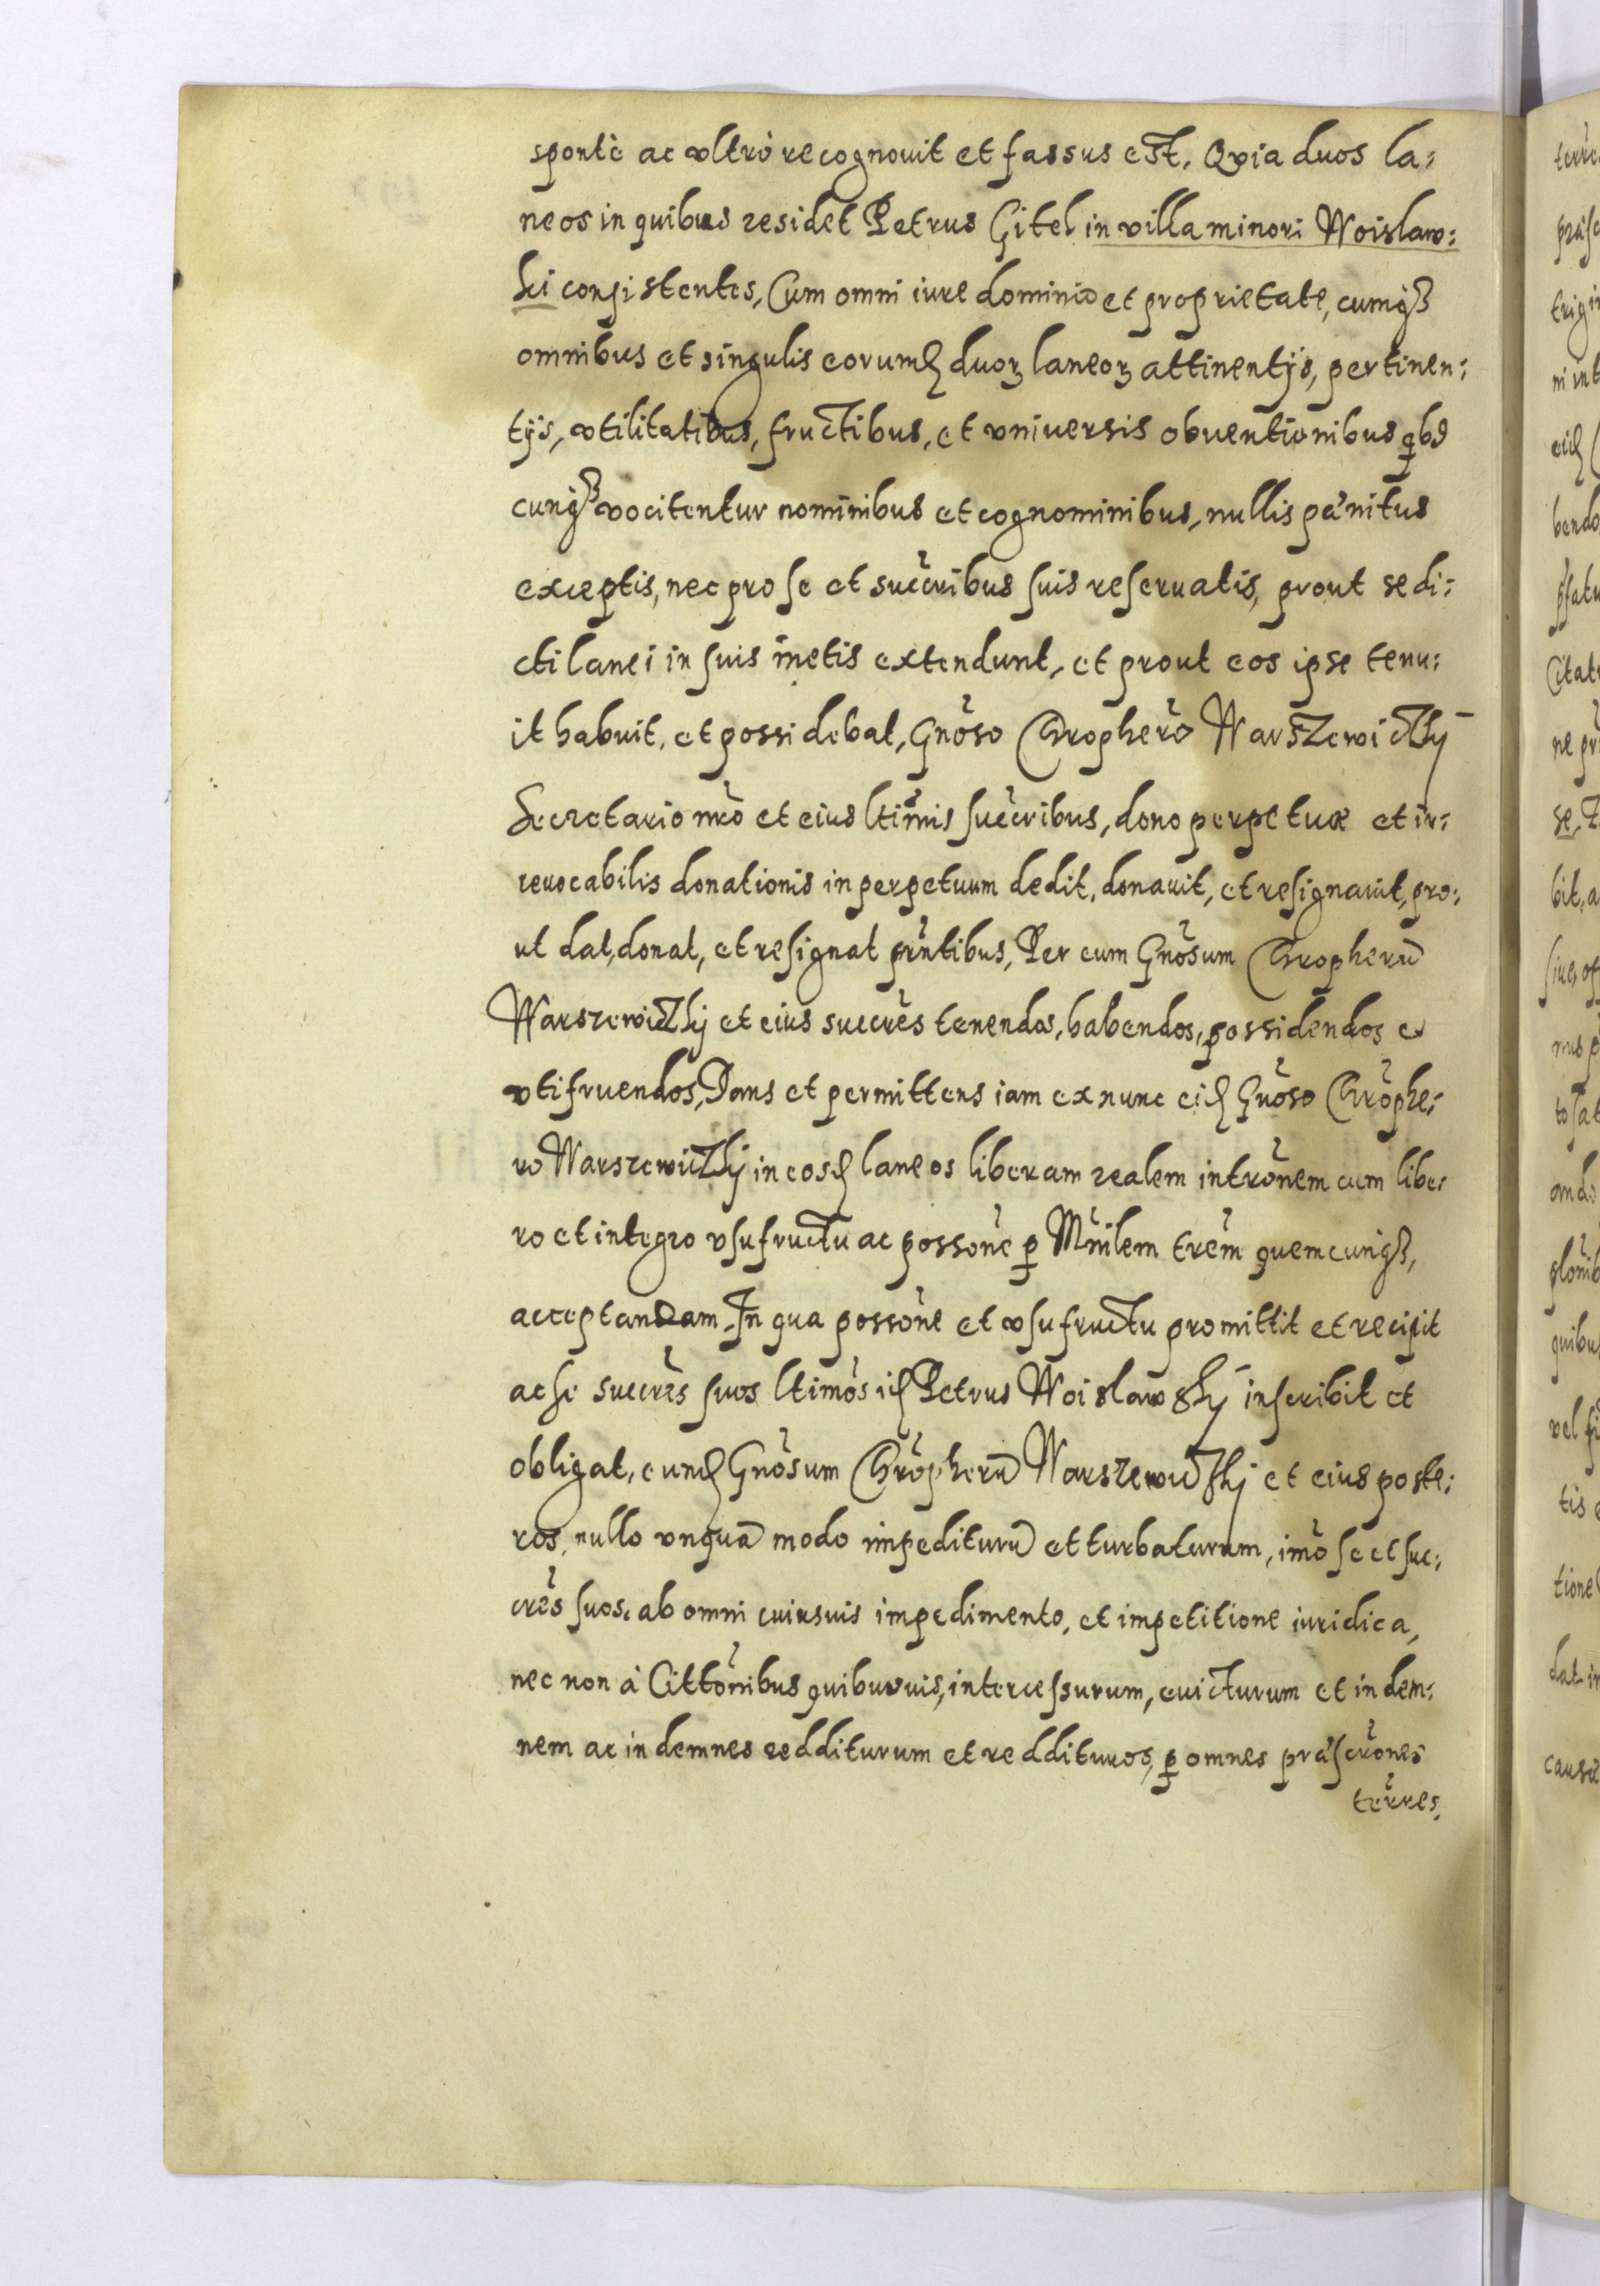 spontè ac vltrò recognouit et fassus est. Qvia duos la:
neos in quibus residet Petrus Gitel in villa minori Woislaw:
ski consistentes, Cum omni iure dominio et proprietate, cumqȝ
omnibus et singulis eorumd duoꝝ laneoꝝ attinentijs, pertinen:
tijs, vtilitatibus, fructibus, et vniuersis obuentionibus qbs
cunqȝ vocitentur nominibus et cognominibus, nullis pænitus
exceptis, nec pro se et succribus suis reseruatis, prout se di:
cti lanei in suis metis extendunt, et prout eos ipse tenu:
it habuit, et possidebat, Gnoso Chrophero Warszewiczkÿ
Secretario nro et eius ltimis succribus, dono perpetuæ et ir:
reuocabilis donationis in perpetuum dedit, donauit, et resignauit, pro:
ut dat, donat, et resignat prntibus, Per eum Gnosum Chropherū
Warszewiczkij et eius succres tenendos, habendos, possidendos et
vtifruendos, Dans et permittens iam ex nunc eid Gnoso Chrophe:
ro Warszewiczkij in eosd laneos liberam realem intronem cum libe:
ro et integro vsufructu ac possone ꝑ Mnilem trem quemcunqȝ,
acceptandam. In qua possone et vsufructu promittit et recipit
ac se succres suos ltimos id Petrus Woislawskÿ inscribit et
obligat, eund Gnosum Chropherū Warszewiczkij et eius poste:
ros, nullo vnquā modo impediturū et turbaturum, imo se et suc:
cres suos, ab omni cuiusuis impedimento, et impetitione iuridica,
nec non à Cittonibus quibusuis, intercessurum, euicturum et indem:
nem ac indemnes redditurum et reddituros, ꝑ omnes præscrones
terres,